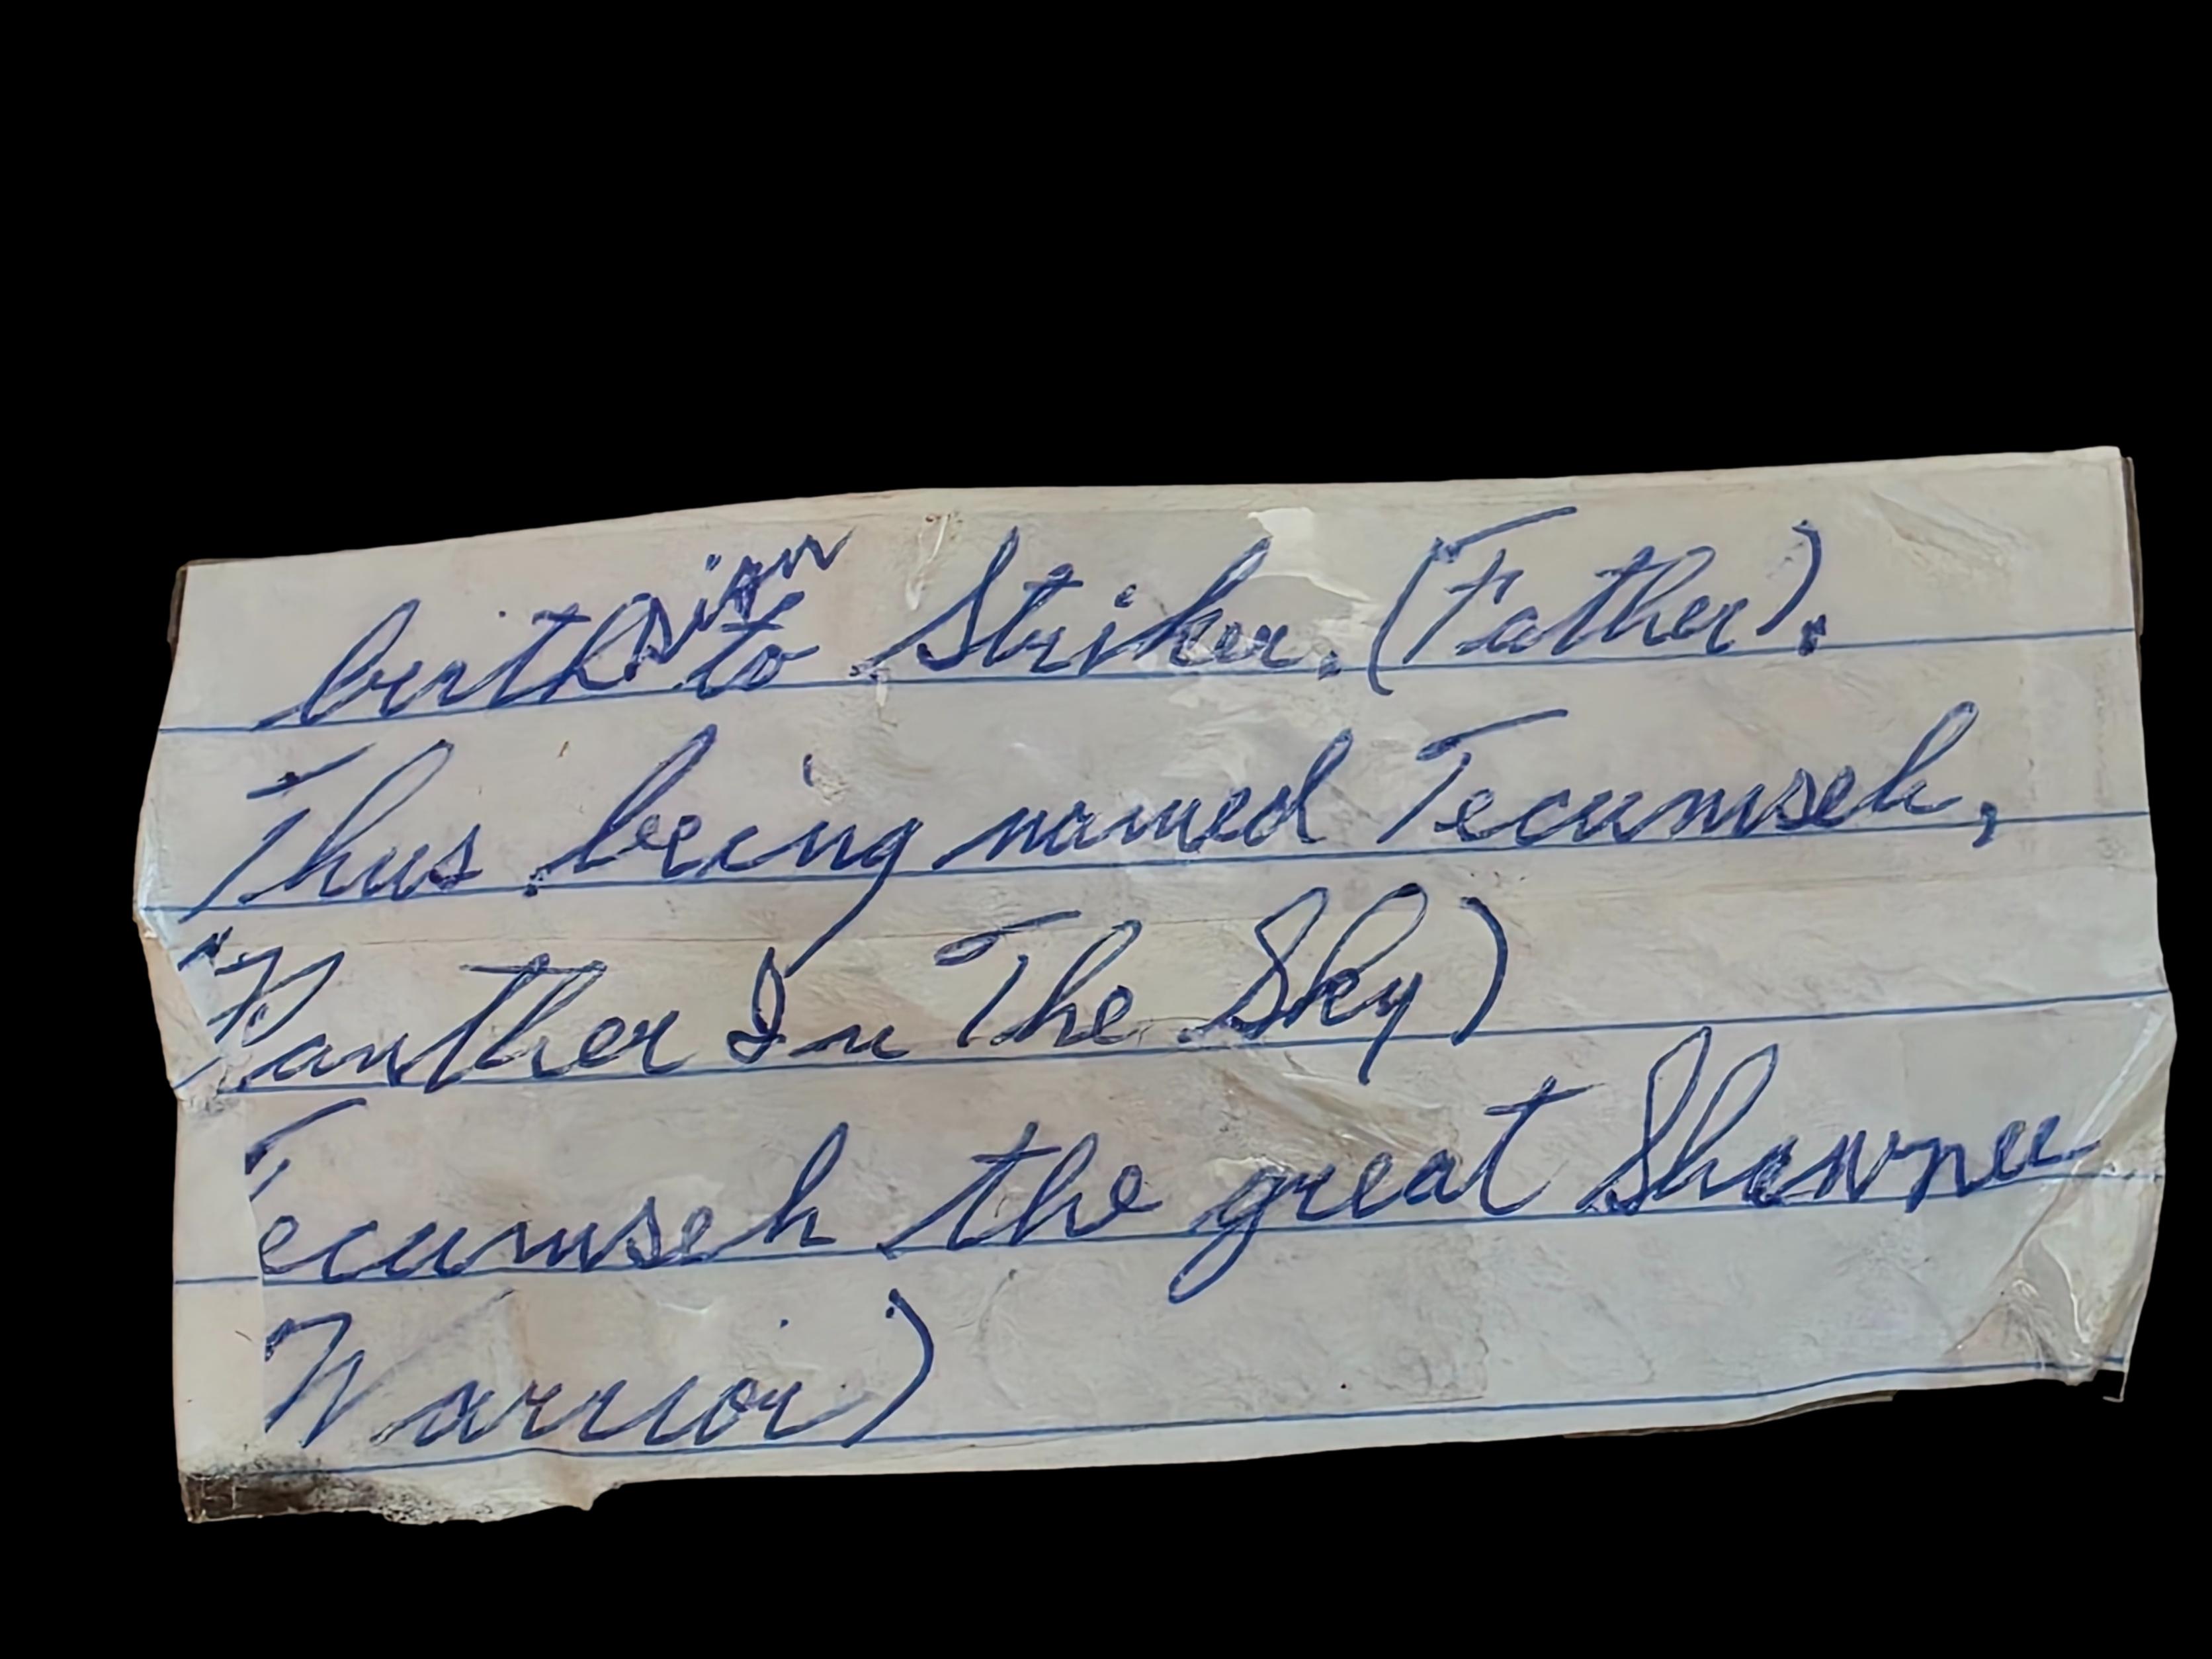 birth sign to Striker. (Father).
Thus being named Tecumseh,
"Panther In The Sky)
Tecumseh the great Shawnee
Warrior)